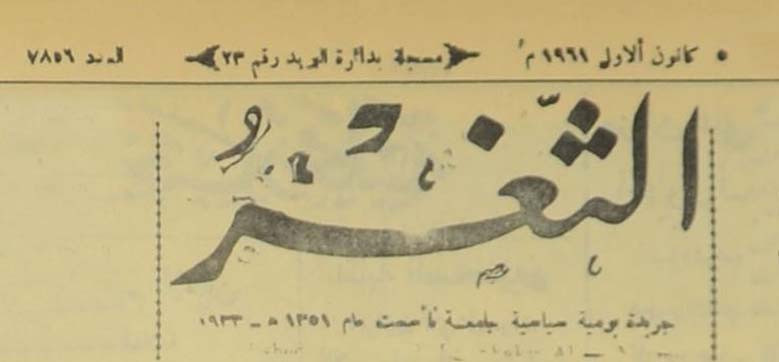 ٥ كانون الاول ١٩٦١ م مسجلة بدائرة البريد رقم ٢٣ العدد ٧٨٥٦
الثَّغْرُ
جريدة يومية سياسية جامعة تأسست عام ١٣٥١ هـ ـ ١٩٣٣